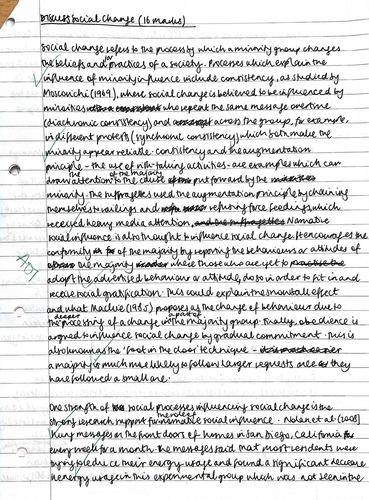 Discuss Social Change (16 marks)
Social change refers to the process by which a minority group changes
the beliefs and or practices of a society. Processes which explain the
influence of minority influence include consistency, as studied by
Moscovichi (1969), where social change is believed to be influenced by
minorities who repeat the same message overtime
(diachronic consistency) and across the group, for example,
in different protests (synchronic consistency) which both make the
minority appear reliable. consistency and the augmentation
principle - the use of risk-taking activities - are examples which can
draw attention to the cause put forward by the
minority. The suffragettes used the augmentation principle by chaining
themselves to railings and refusing force feeding, which
received heavy media attention. Normative
social influence is also thought to influence social change. It encourages the
conformity of the majority by reporting the behaviours or attitudes of
the majority where those who are yet to
adopt the advertised behaviour or attitude, do so in order to fit in and
receive social gratification. This could explain the snowball effect
and what Mackie (1985) proposes as the change of behaviour due to
the deeper processing of a change in a part of the majority group. Finally, obedience is
argued to influence social change by gradual commitment. This is
also known as the 'foot in the door technique' -
a majority is much more likely to follow larger requests once they
have followed a small one.
One strength of social processes influencing social change is the
strong research support for normative social influence. Nolan et al (2008)
Hung messages on the front doors of homes in San Diego, California for
every week for a month. The messages said that most residents were
trying to reduce their energy usage and found a significant decrease
in energy usage in this experimental group which was not seen in the